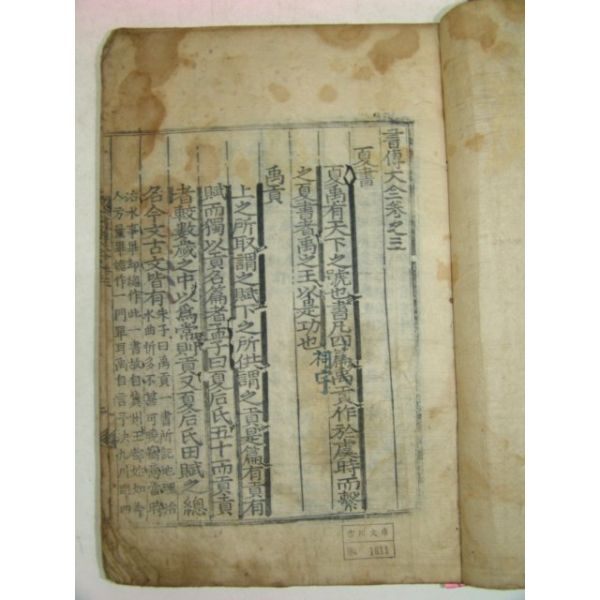 書傳大全卷之三
夏書
夏禹有天下之號也書凡四篇禹貢作於虞時而繫
之夏書者禹之王以是功也
禹貢
上之所取謂之賦下之所供謂之貢是篇有貢有
賦而獨以貢名篇者孟子曰夏后氏五十而貢貢
者較數歲之中以爲常則貢又夏后氏田賦之總
名今文古文皆有
朱子曰禹貢一書所記地理治
水曲折多不甚可曉
1811